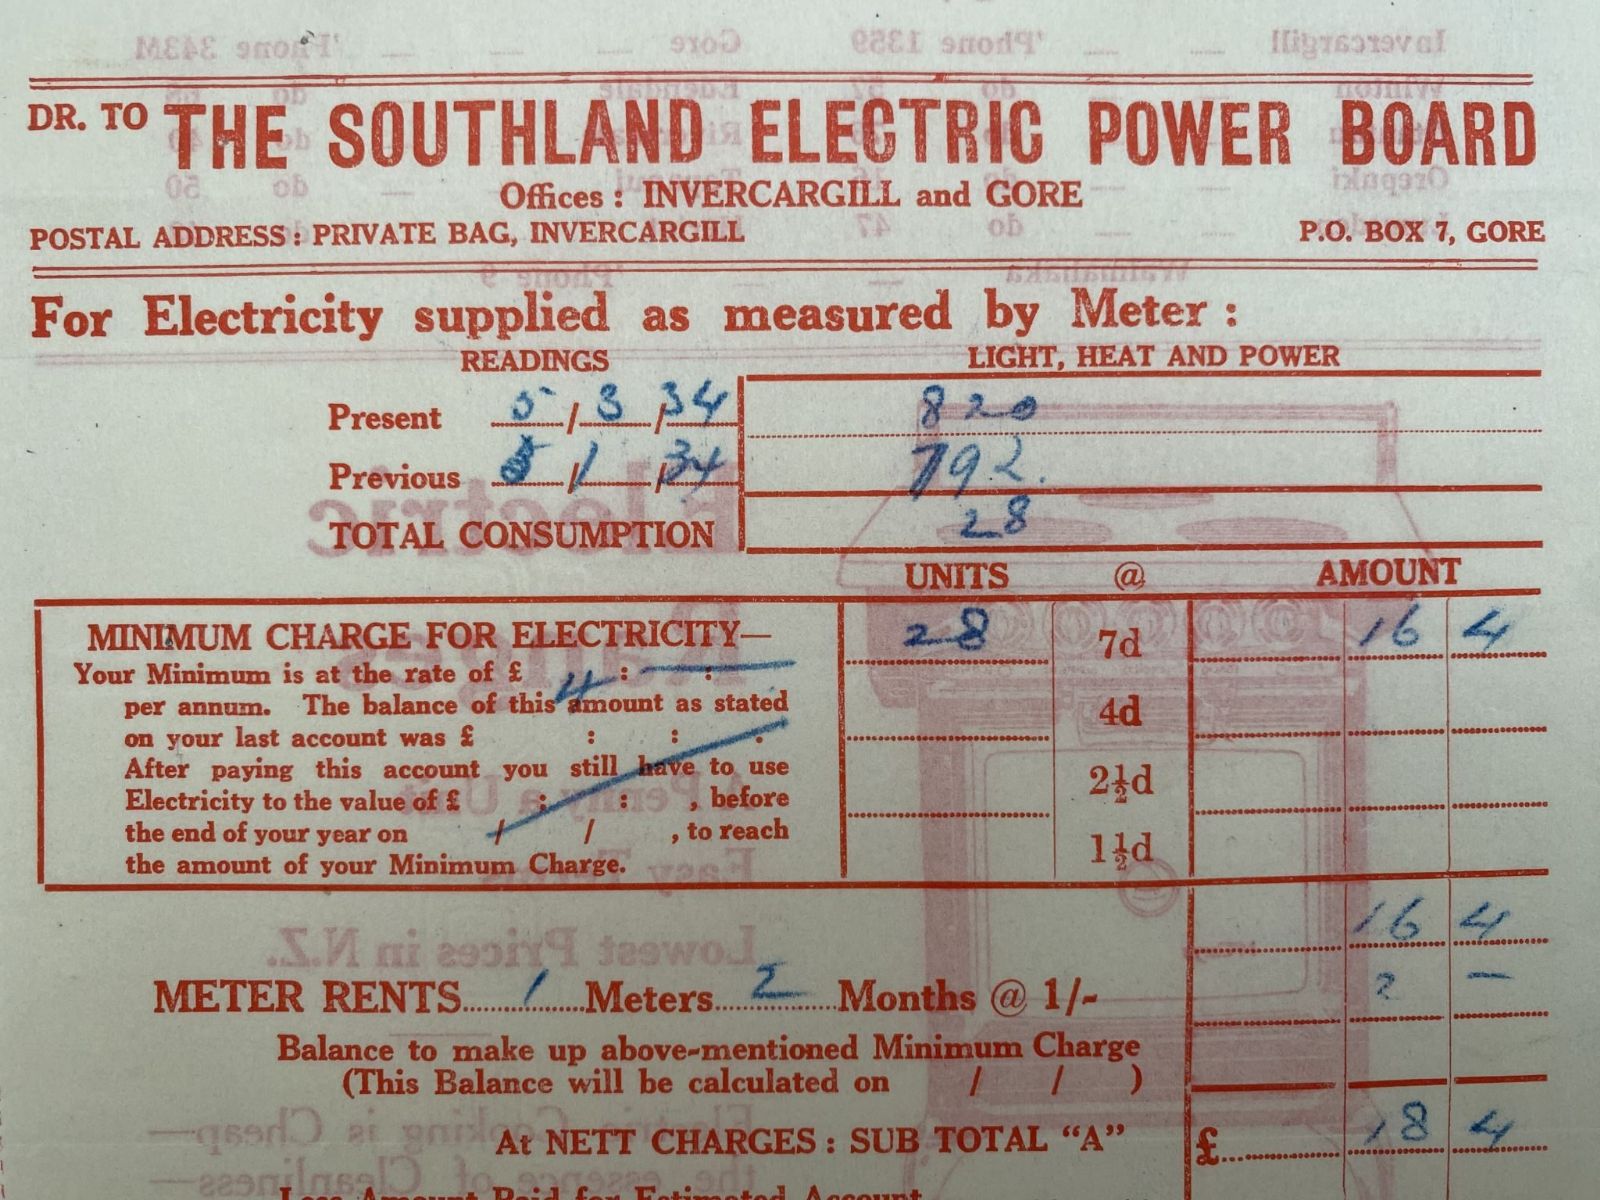 DR. TO THE SOUTHLAND ELECTRIC POWER BOARD
Offices : INVERCARGILL and GORE
POSTAL ADDRESS : PRIVATE BAG, INVERCARGILL P.O. BOX 7, GORE
For Electricity supplied as measured by Meter :
READINGS LIGHT, HEAT AND POWER
Present 5 / 3 / 34 820
Previous 5 / 1 / 34 792.
TOTAL CONSUMPTION 28
UNITS @ AMOUNT
MINIMUM CHARGE FOR ELECTRICITY— 28 7d 16 4
Your Minimum is at the rate of £ 4 : — :
per annum. The balance of this amount as stated 4d
on your last account was £ : : .
After paying this account you still have to use 2½d
Electricity to the value of £ : : , before
the end of your year on / / , to reach 1½d
the amount of your Minimum Charge.
16 4
METER RENTS 1 Meters 2 Months @ 1/- 2 —
Balance to make up above-mentioned Minimum Charge
(This Balance will be calculated on / / )
At NETT CHARGES : SUB TOTAL "A" £ 18 4
Less Amount Paid for Estimated Account